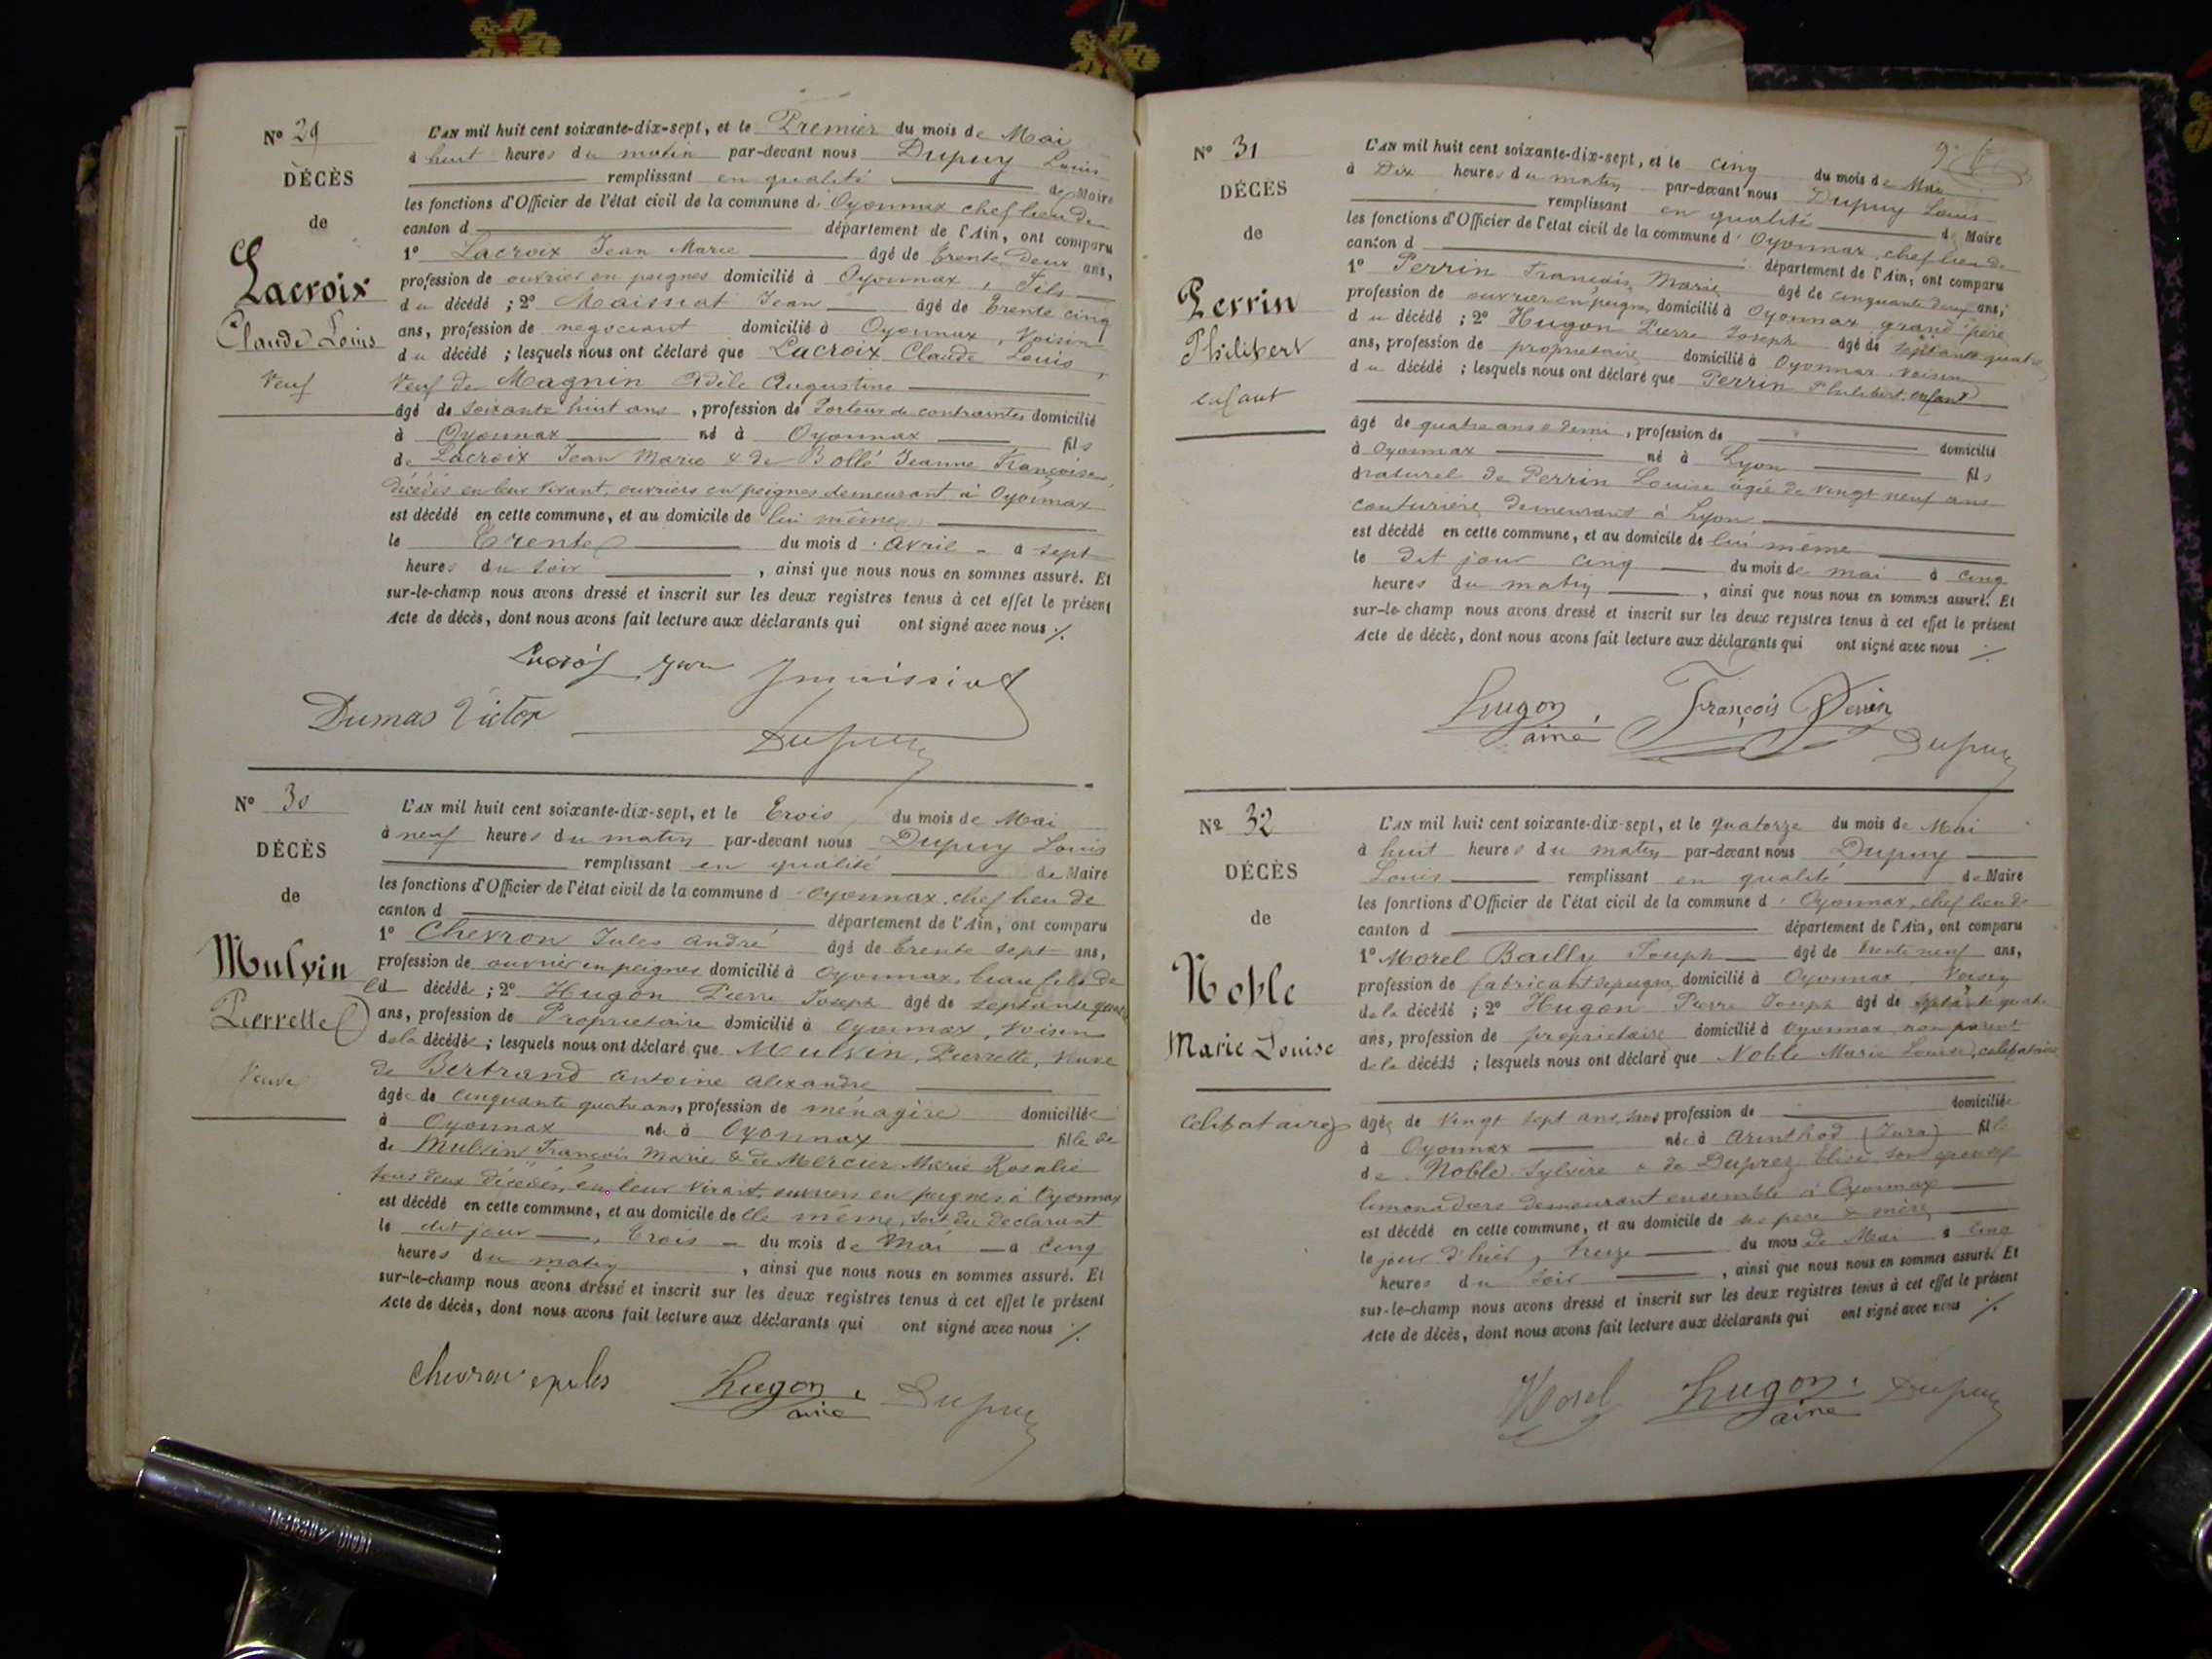 N° 29
DÉCÈS
de
Lacroix
Claude Louis
Veuf
L'AN mil huit cent soixante-dix-sept, et le Premier du mois de Mai
à huit heures du matin par-devant nous Dupuy Louis
remplissant en qualité de Maire
les fonctions d'Officier de l'état civil de la commune d'Oyonnax chef lieu de
canton d département de l'Ain, ont comparu
1° Lacroix Jean Marie âgé de trente deux ans,
profession de ouvrier en peignes domicilié à Oyonnax, fils
du décédé ; 2° Maissiat Jean âgé de trente cinq
ans, profession de négociant domicilié à Oyonnax, voisin
du décédé ; lesquels nous ont déclaré que Lacroix Claude Louis,
Veuf de Magnin Adèle Augustine
âgé de soixante huit ans, profession de Porteur de contraintes domicilié
à Oyonnax né à Oyonnax fils
de Lacroix Jean Marie & de Bollé Jeanne Françoise,
décédés en leur vivant, ouvriers en peignes demeurant à Oyonnax
est décédé en cette commune, et au domicile de lui même
le Trente du mois d'Avril à sept
heures du soir, ainsi que nous nous en sommes assuré. Et
sur-le-champ nous avons dressé et inscrit sur les deux registres tenus à cet effet le présent
Acte de décès, dont nous avons fait lecture aux déclarants qui ont signé avec nous ./.
Lacroix Jean Jmaissiat
Dumas Victor
Dupuy
N° 30
DÉCÈS
de
Mulvin
Pierrette
Veuve
L'AN mil huit cent soixante-dix-sept, et le Trois du mois de Mai
à neuf heures du matin par-devant nous Dupuy Louis
remplissant en qualité de Maire
les fonctions d'Officier de l'état civil de la commune d'Oyonnax, chef lieu de
canton d département de l'Ain, ont comparu
1° Chevron Jules André âgé de trente sept ans,
profession de ouvrier en peignes domicilié à Oyonnax, beau fils de
la décédée ; 2° Hugon Pierre Joseph âgé de septante quatre
ans, profession de Propriétaire domicilié à Oyonnax, voisin
de la décédée ; lesquels nous ont déclaré que Mulvin, Pierrette, Veuve
de Bertrand Antoine Alexandre
âgée de cinquante quatre ans, profession de ménagère domiciliée
à Oyonnax née à Oyonnax fille de
de Mulvin François Marie & de Mercier Marie Rosalie
tous deux décédés, en leur vivant, ouvriers en peignes à Oyonnax
est décédé en cette commune, et au domicile de elle même, soit du déclarant
le dit jour, Trois du mois de Mai à cinq
heures du matin, ainsi que nous nous en sommes assuré. Et
sur-le-champ nous avons dressé et inscrit sur les deux registres tenus à cet effet le présent
Acte de décès, dont nous avons fait lecture aux déclarants qui ont signé avec nous ./.
Chevron Hugon aîné Dupuy
N° 31
DÉCÈS
de
Perrin
Philibert
enfant
L'AN mil huit cent soixante-dix-sept, et le cinq du mois de Mai
à Dix heures du matin par-devant nous Dupuy Louis
remplissant en qualité de Maire
les fonctions d'Officier de l'état civil de la commune d'Oyonnax, chef lieu de
canton d département de l'Ain, ont comparu
1° Perrin François Marie âgé de cinquante deux ans,
profession de ouvrier en peignes domicilié à Oyonnax grand père
du décédé ; 2° Hugon Pierre Joseph âgé de septante quatre
ans, profession de propriétaire domicilié à Oyonnax voisin
du décédé ; lesquels nous ont déclaré que Perrin Philibert enfant
âgé de quatre ans & demi, profession de domicilié
à Oyonnax né à Lyon fils
naturel de Perrin Louise âgée de vingt neuf ans
couturière demeurant à Lyon
est décédé en cette commune, et au domicile de lui même
le dit jour cinq du mois de mai à cinq
heures du matin, ainsi que nous nous en sommes assuré. Et
sur-le-champ nous avons dressé et inscrit sur les deux registres tenus à cet effet le présent
Acte de décès, dont nous avons fait lecture aux déclarants qui ont signé avec nous ./.
Hugon aîné François Perrin Dupuy
N° 32
DÉCÈS
de
Noble
Marie Louise
célibataire
L'AN mil huit cent soixante-dix-sept, et le quatorze du mois de Mai
à huit heures du matin par-devant nous Dupuy
Louis remplissant en qualité de Maire
les fonctions d'Officier de l'état civil de la commune d'Oyonnax, chef lieu de
canton d département de l'Ain, ont comparu
1° Morel Bailly Joseph âgé de trente neuf ans,
profession de fabricant de peignes domicilié à Oyonnax, Voisin
de la décédé ; 2° Hugon Pierre Joseph âgé de septante quatre
ans, profession de propriétaire domicilié à Oyonnax non parent
de la décédé ; lesquels nous ont déclaré que Noble Marie Louise, célibataire
âgée de Vingt sept ans, sans profession de domiciliée
à Oyonnax née à Arinthod (Jura) fille
de Noble Sylvère & de Duprez Elise son épouse
limonadiers demeurant ensemble à Oyonnax
est décédé en cette commune, et au domicile de ses père & mère
le jour d'hier, treize du mois de Mai à cinq
heures du soir, ainsi que nous nous en sommes assuré. Et
sur-le-champ nous avons dressé et inscrit sur les deux registres tenus à cet effet le présent
Acte de décès, dont nous avons fait lecture aux déclarants qui ont signé avec nous ./.
Morel Hugon aîné Dupuy